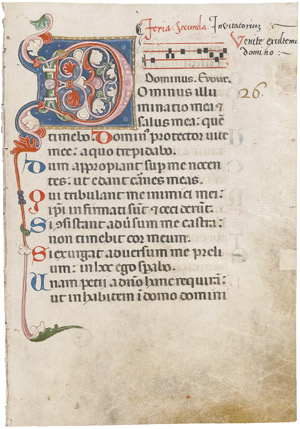 Feria Secunda Invitatorium
Venite exultemus
domino
Dominus. Evovae.
Dominus illu
minatio mea &
salus mea: que
timebo Dominus protector vite
mee: a quo trepidabo.
Dum appropiant sup me nocen
tes: ut edant carnes meas.
Qui tribulant me inimici mei:
ipsi infirmati sunt & ceciderunt.
Si consistant adversum me castra:
non timebit cor meum.
Si exurgat adversum me preli
um: in hoc ego sperabo.
Unam petii a domino hanc requiram:
ut inhabitem in domo domini
26.